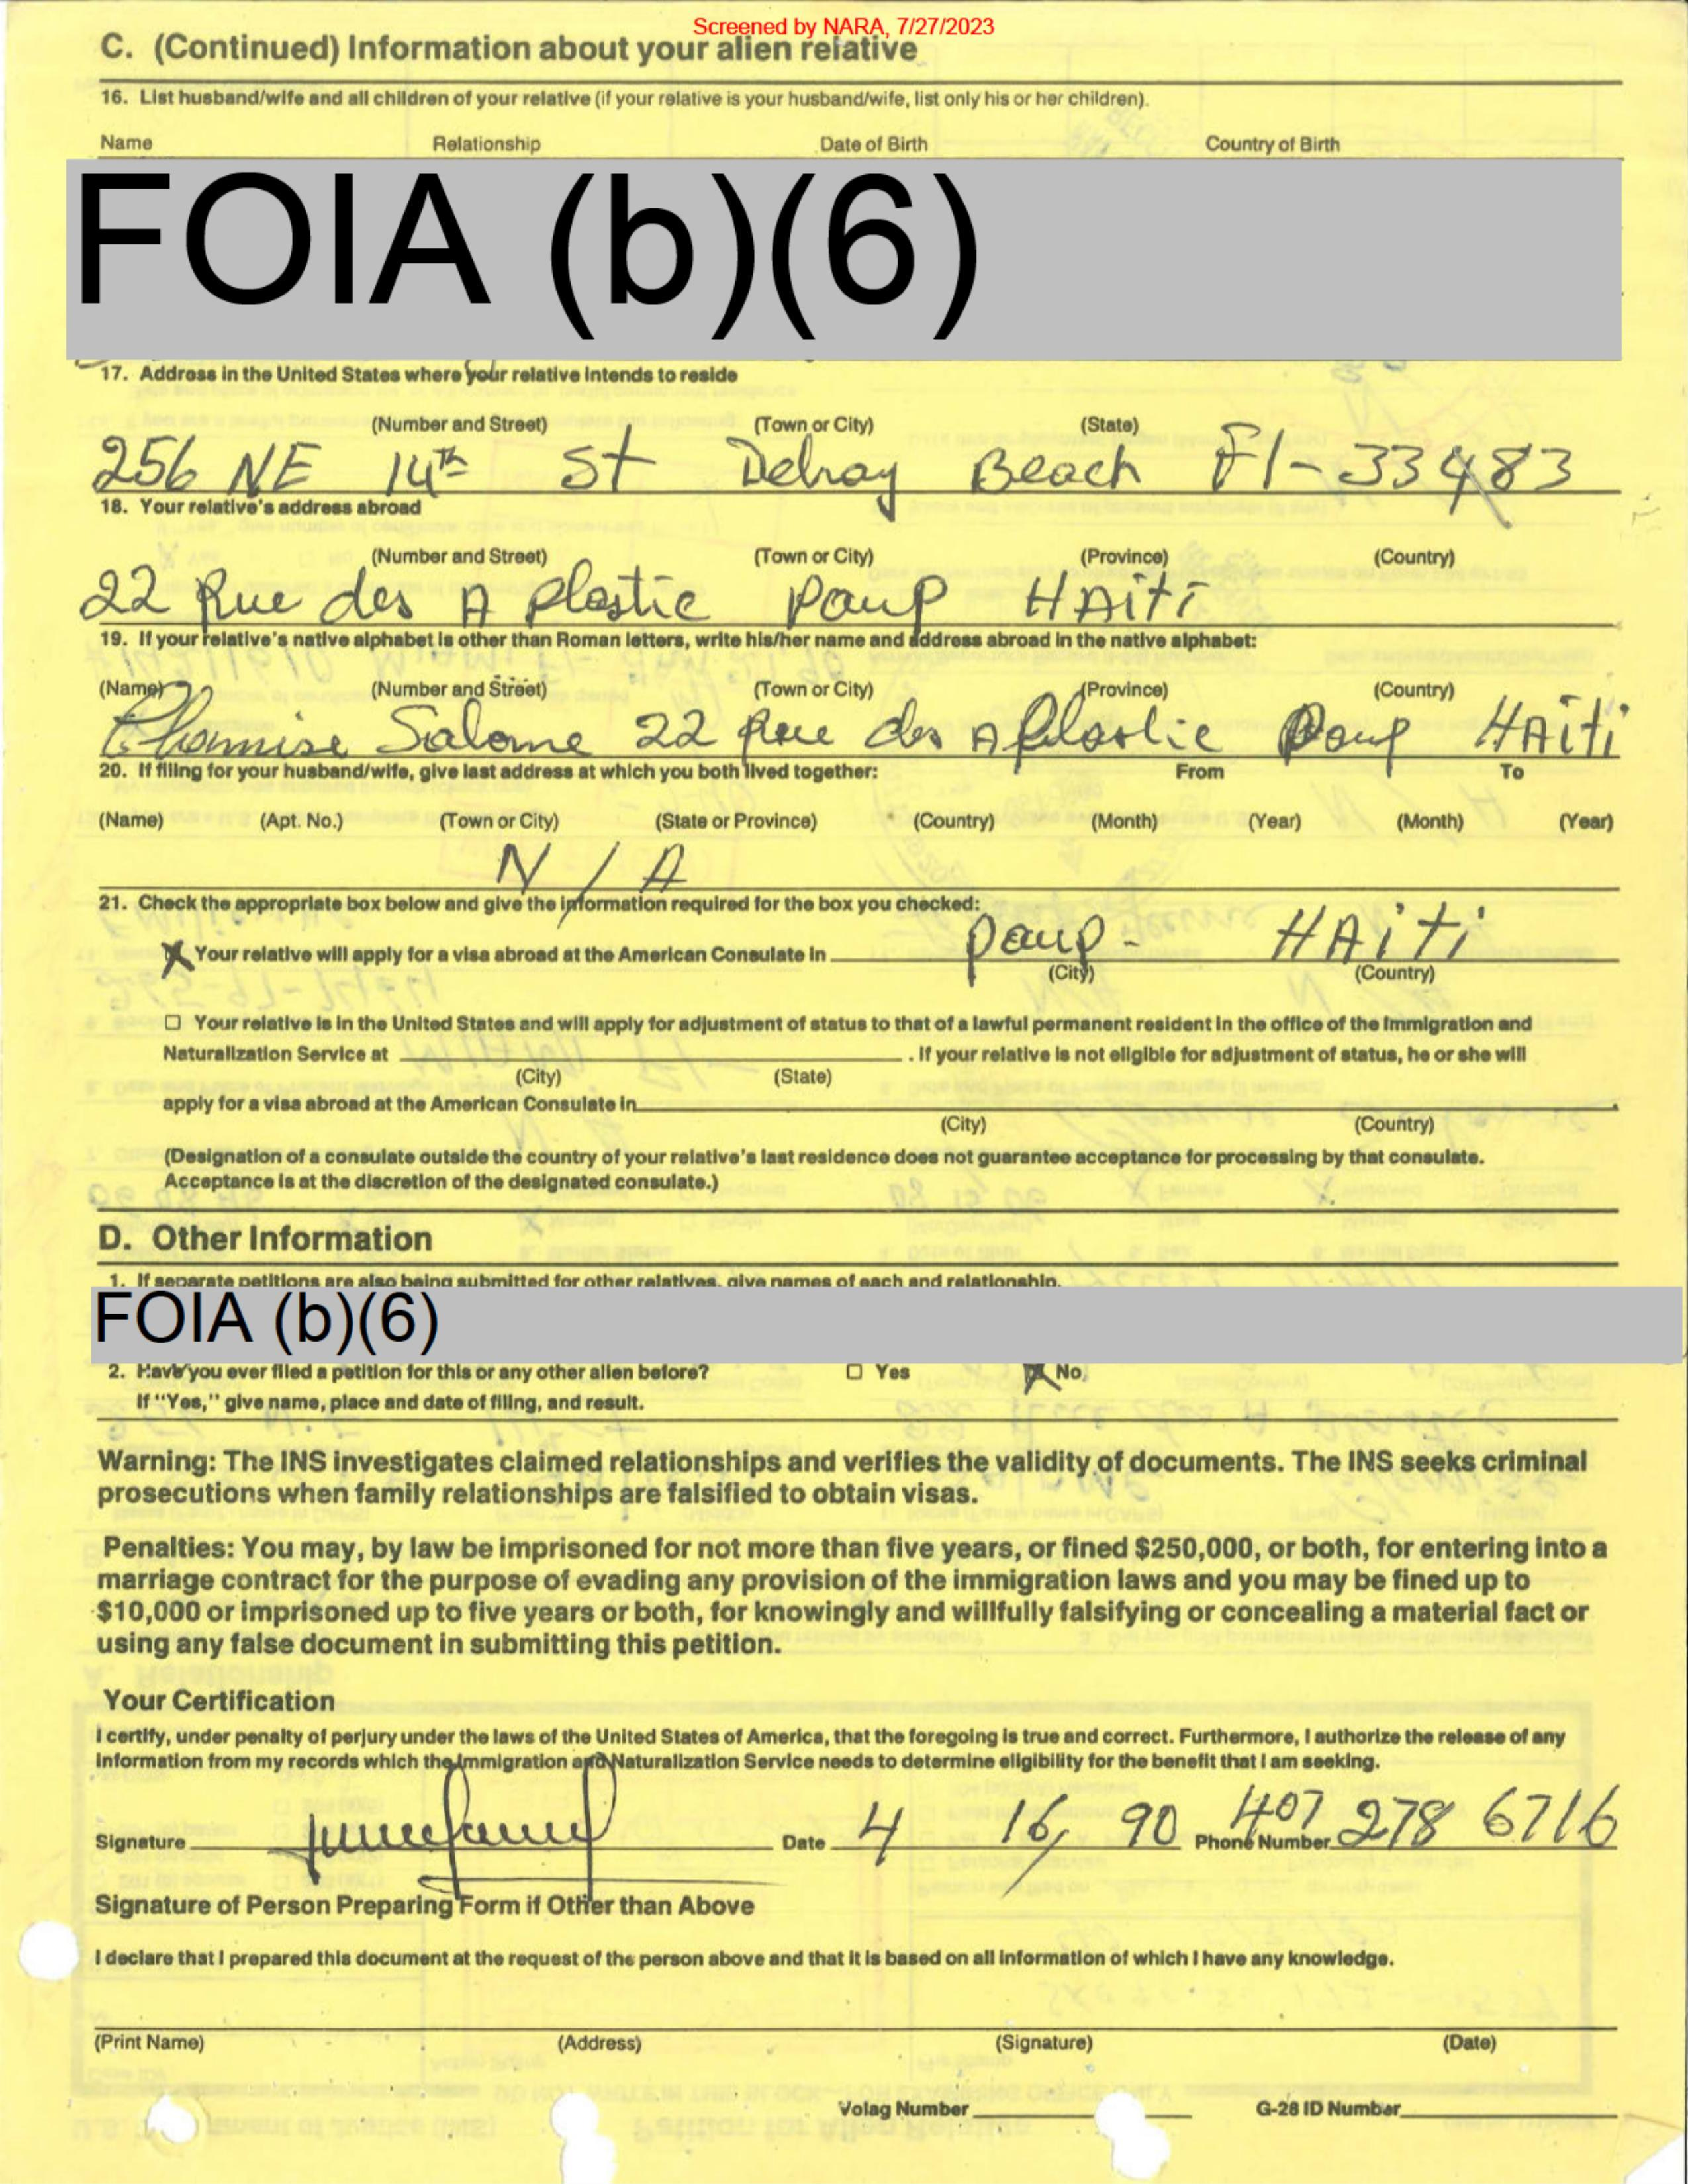 Screened by NARA, 7/27/2023
C. (Continued) Information about your alien relative
16. List husband/wife and all children of your relative (if your relative is your husband/wife, list only his or her children).
Name Relationship Date of Birth Country of Birth
FOIA (b)(6)
17. Address in the United States where your relative intends to reside
(Number and Street) (Town or City) (State)
256 NE 14th St Delray Beach Fl-33483
18. Your relative's address abroad
(Number and Street) (Town or City) (Province) (Country)
22 Rue des A plastic paup HAiti
19. If your relative's native alphabet is other than Roman letters, write his/her name and address abroad in the native alphabet:
(Name) (Number and Street) (Town or City) (Province) (Country)
Salome 22 Rue des A Plastic Paup HAiti
20. If filing for your husband/wife, give last address at which you both lived together: From To
(Name) (Apt. No.) (Town or City) (State or Province) (Country) (Month) (Year) (Month) (Year)
N / A
21. Check the appropriate box below and give the information required for the box you checked:
X Your relative will apply for a visa abroad at the American Consulate in paup- HAiti
(City) (Country)
☐ Your relative is in the United States and will apply for adjustment of status to that of a lawful permanent resident in the office of the Immigration and
Naturalization Service at . If your relative is not eligible for adjustment of status, he or she will
(City) (State)
apply for a visa abroad at the American Consulate in .
(City) (Country)
(Designation of a consulate outside the country of your relative's last residence does not guarantee acceptance for processing by that consulate.
Acceptance is at the discretion of the designated consulate.)
D. Other Information
1. If separate petitions are also being submitted for other relatives, give names of each and relationship.
FOIA (b)(6)
2. Have you ever filed a petition for this or any other alien before? ☐ Yes X No
If "Yes," give name, place and date of filing, and result.
Warning: The INS investigates claimed relationships and verifies the validity of documents. The INS seeks criminal
prosecutions when family relationships are falsified to obtain visas.
Penalties: You may, by law be imprisoned for not more than five years, or fined $250,000, or both, for entering into a
marriage contract for the purpose of evading any provision of the immigration laws and you may be fined up to
$10,000 or imprisoned up to five years or both, for knowingly and willfully falsifying or concealing a material fact or
using any false document in submitting this petition.
Your Certification
I certify, under penalty of perjury under the laws of the United States of America, that the foregoing is true and correct. Furthermore, I authorize the release of any
information from my records which the Immigration and Naturalization Service needs to determine eligibility for the benefit that I am seeking.
Signature Date 4 16, 90 Phone Number 407 278 6716
Signature of Person Preparing Form if Other than Above
I declare that I prepared this document at the request of the person above and that it is based on all information of which I have any knowledge.
(Print Name) (Address) (Signature) (Date)
Volag Number G-28 ID Number